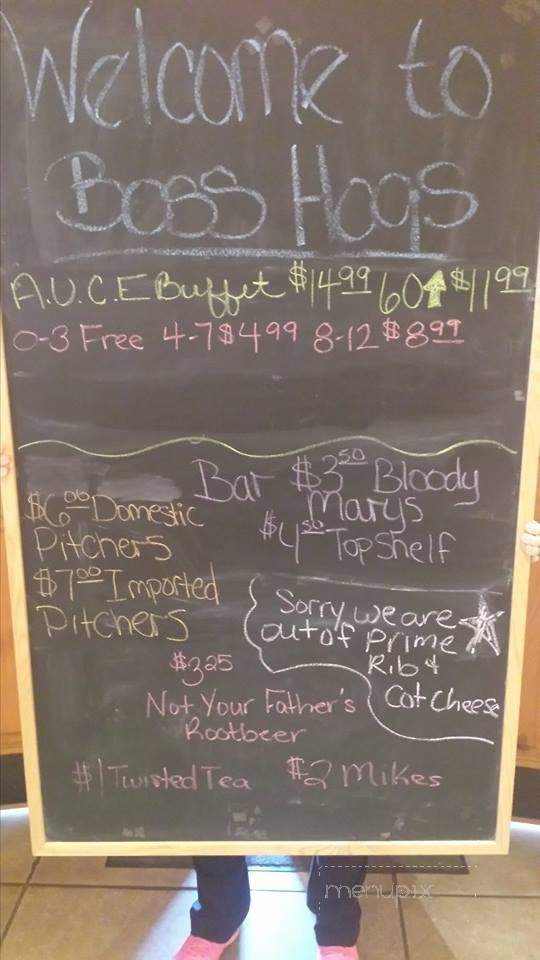 Welcome to
Boss Hogs
A.U.C.E Buffet $14.99 60↑ $11.99
0-3 Free 4-7 $4.99 8-12 $8.99
Bar $3.50 Bloody
Marys
$4.50 Top Shelf
$6.00 Domestic
Pitchers
$7.00 Imported
Pitchers
Sorry we are
out of Prime
Rib &
Cot Cheese
$3.25
Not Your Father's
Rootbeer
$1 Twisted Tea $2 Mikes
menupix